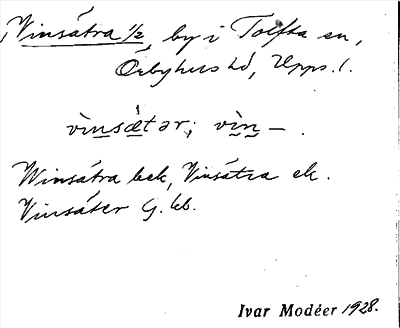 Vinsätra 1/2, by i Tolfta sn,
Örbyhus hd, Upps. l.
vìnsä̀tər; vìn –.
Winsätra bek, Vinsätra ek.
Vinsäter G. kb.
Ivar Modéer 1928.